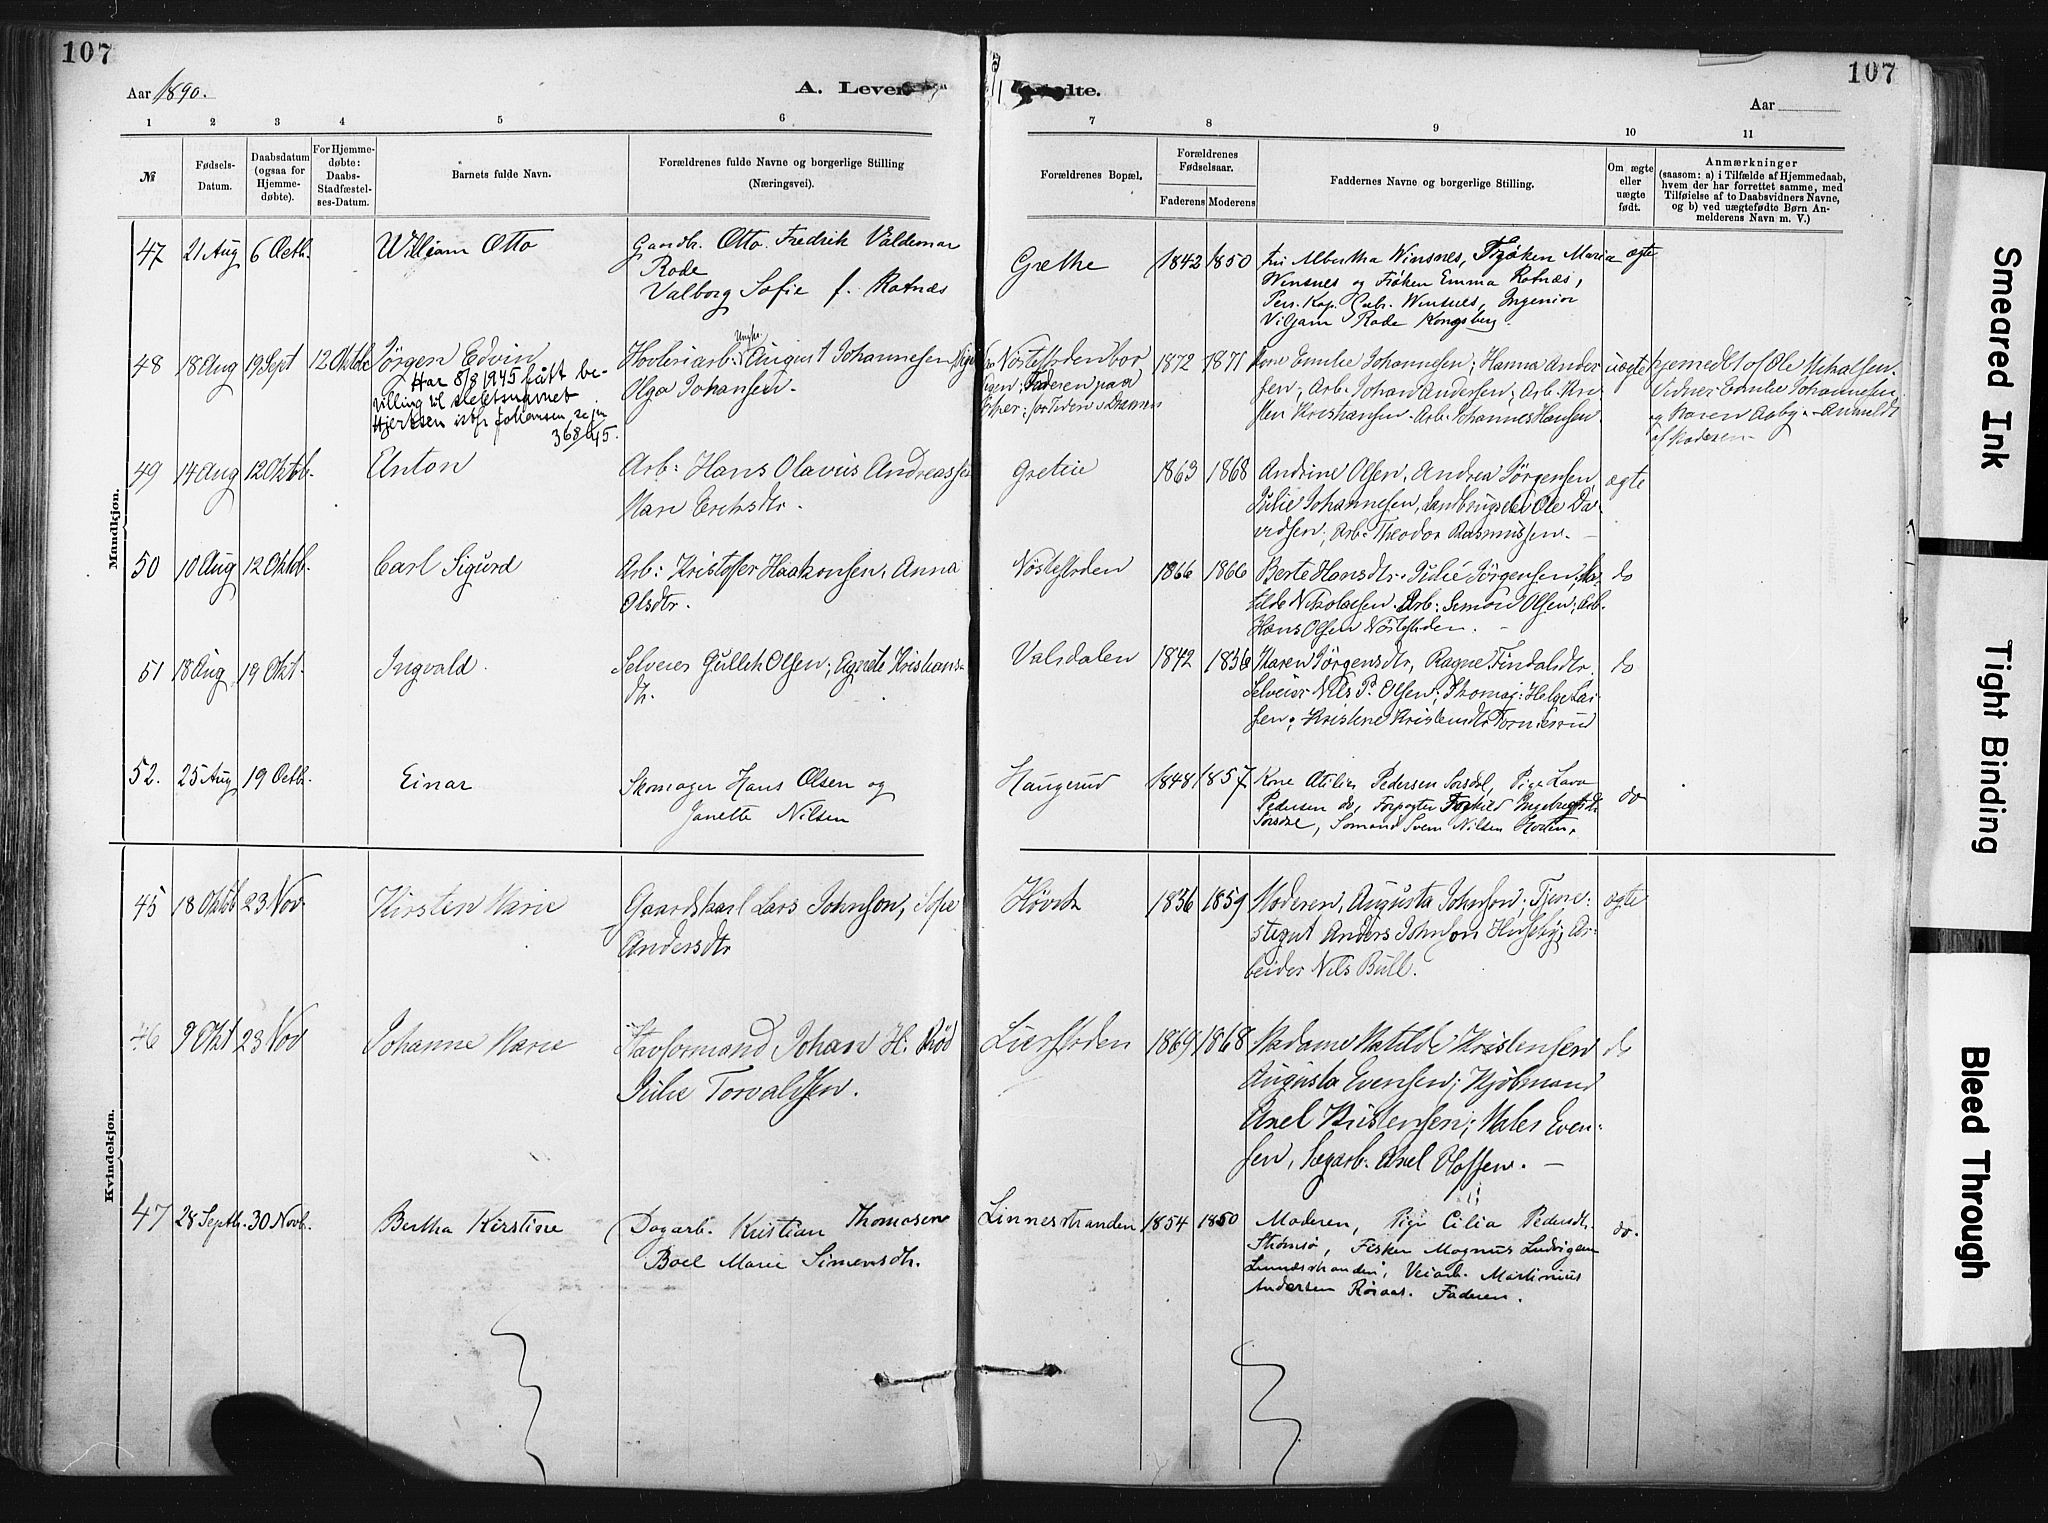 107
107
Aar 1890.
A. Leven
Aar
1
2
3
4
5
6
7
8
9
10
11
№
Fødsels-
Datum.
Daabsdatum
(ogsaa for
Hjemme-
døbte).
For Hjemme-
døbte:
Daabs-
Stadfæstel-
ses-Datum.
Barnets fulde Navn.
Forældrenes fulde Navne og borgerlige Stilling
(Næringsvei).
Forældrenes Bopæl.
Forældrenes
Fødselsaar.
Faderens
Moderens
Faddernes Navne og borgerlige Stilling.
Om ægte
eller
uægte
født.
Anmærkninger
(saasom: a) i Tilfælde af Hjemmedaab,
hvem der har forrettet samme, med
Tilføielse af to Daabsvidners Navne,
og b) ved uægtefødte Børn An-
melderens Navn m. V.)
Mandkjøn.
47
21 Aug
6 Octb.
William Otto
Gaardb. Otto Fredrik Valdemar
Rode
Valborg Sofie f. Rotnæs
Grette
1842
1850
Fru Albertha Winsnes, Frøken Maria
Winsnes og Frøken Emma Rotnæs,
Pers. Kap. Winsnes, Ingeniør
Viljam Rode Kongsberg.
ægte
48
18 Aug
19 Sept
12 Oktbr
Jørgen Edvin
Har 8/8 1945 fått be-
villing til slektsnavnet
istf Johansen
368/45.
Høvleriarb: Ungkr. August Johannesen
Olga Johansen.
Nøstestrden bor
Faderen paa
1872
1871
Kone Emilie Johannesen; Hanna Ander-
sen, Arb. Johan Andersen; Arb. Kri-
sten Kristiansen. Arb. Johannes Hansen
uægte
hjemedt af Ole Mikalsen.
Vidner Emilie Johannesen
og Karen Aaby. Anmeldt
af Moderen
49
14 Aug
12 Oktob.
Anton
Arb: Hans Olavus Andreassen
Mari Eriksdtr.
Grette
1863
1868
Andrine Olsen, Andrea Jørgensen,
Julie Johannesen, Landbrugsel Ole Da-
vidsen; Arb. Theodor Rasmussen.
ægte
50
10 Aug
12 Oktob.
Carl Sigurd
Arb: Kristoffer Haakonsen, Anna
Olsdtr.
Nøstestrden
1866
1866
Berte Hansdtr. Julie Jørgensen, Ma-
tilde Nikolaisen. Arb: Simon Olsen; Arb.
Hans Olsen Nøstestrden.
do
51
18 Aug
19 Okt.
Ingvald.
Selveier Gullik Olsen; Agnete Kristians-
dtr.
Valsdalen
1842
1836
Karen Jørgensdtr, Ragne Findalsdtr.
Selveier Nils P. Olsen; Helge Lar-
sen; Kristine Kristensdtr Tornesrud
do
52.
25 Aug
19 Octb.
Einar
Skomager Hans Olsen og
Janette Nilsen
Haugerud
1848
1857
Kone Atilie Pedersen Sorsdal, Pige Lava
Pedersen do, Forpagter
Sorsdal, Sømand Sven Nilsen Horten.
do
Kvindekjøn.
45
18 Oktob
23 Nov.
Kirsten Marie
Gaardskarl Lars Johnson, Sofie
Andersdtr
Høvik
1836
1859
Moderen, Augusta Johnson; Tjene-
stegut Anders Johnson Huseby, Ar-
beider Nils Bull.
ægte
46
9 Okt
23 Nov
Johanne Marie
Stavformand Johan H. Rød
Julie Torvaldsen.
Lierstrden
1869
1868
Madame Matilde Kristensen
Augusta Evensen; Kjøbmand
Axel Kristensen; Males Even-
sen, Sagarb. Axel Olafsen.
do
47
28 Septb.
30 Novb.
Bertha Kirstine
Dagarb. Kristian Thomasen
Boel Marie Simensdtr.
Linnestranden
1854
1850
Moderen, Pige Cilia Pedersdtr.
Strømsø, Fisker Magnus Ludvigsen
Linnesstranden, Veiarb. Martinius
Andersen Røraas. Faderen.
do.
Smeared Ink
Tight Binding
Bleed Through